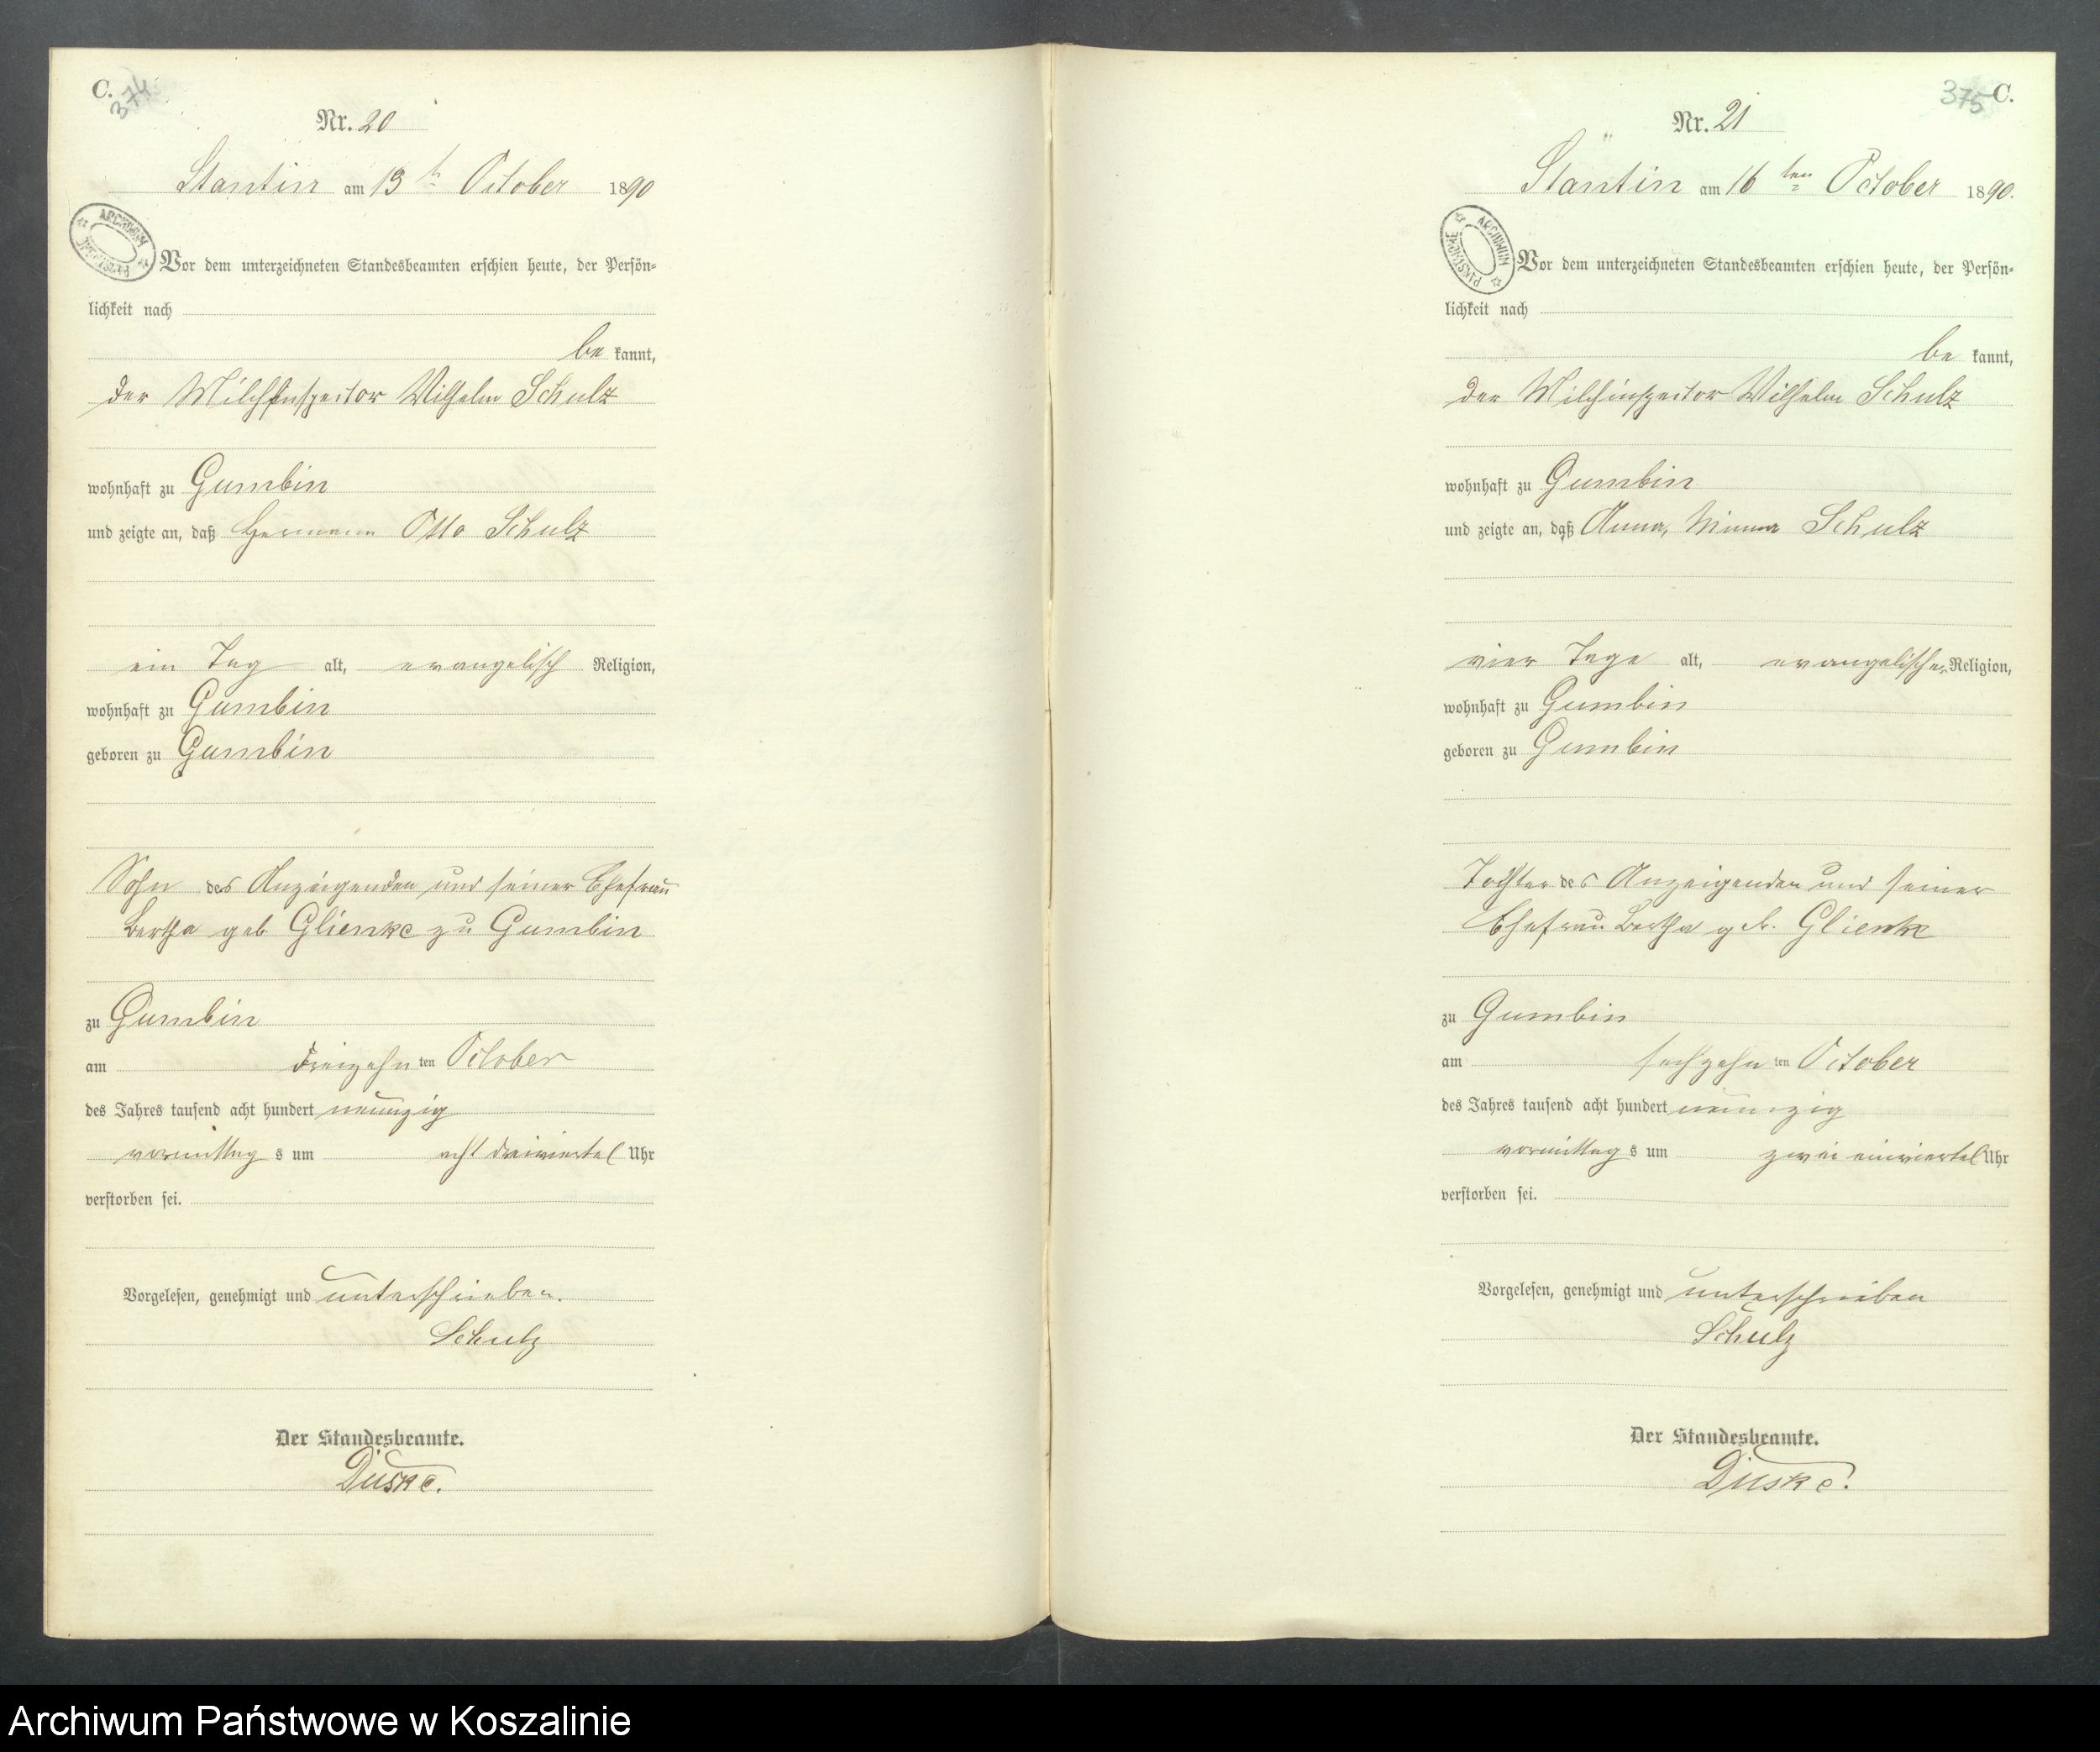 C.
374
Nr. 20
Stantin am 13 t October 1890
ARCHIWUM PAŃSTWOWE
Vor dem unterzeichneten Standesbeamten erschien heute, der Persön=
lichkeit nach
be kannt,
der Milchinspector Wilhelm Schulz
wohnhaft zu Gumbin
und zeigte an, daß Hermann Otto Schulz
ein Tag alt, evangelisch Religion,
wohnhaft zu Gumbin
geboren zu Gumbin
Sohn des Anzeigenden und seiner Ehefrau
Bertha geb Glienke zu Gumbin
zu Gumbin
am dreizehn ten October
des Jahres tausend acht hundert neunzig
vormittag s um acht dreiviertel Uhr
verstorben sei.
Vorgelesen, genehmigt und unterschrieben.
Schulz
Der Standesbeamte.
Düske.
375 C.
Nr. 21
Stantin am 16 ten October 1890.
ARCHIWUM PAŃSTWOWE
Vor dem unterzeichneten Standesbeamten erschien heute, der Persön=
lichkeit nach
be kannt,
der Milchinspector Wilhelm Schulz
wohnhaft zu Gumbin
und zeigte an, daß Anna, Minna Schulz
vier Tage alt, evangelischer Religion,
wohnhaft zu Gumbin
geboren zu Gumbin
Tochter des Anzeigenden und seiner
Ehefrau Bertha geb. Glienke
zu Gumbin
am sechzehn ten October
des Jahres tausend acht hundert neunzig
vormittag s um zwei einviertel Uhr
verstorben sei.
Vorgelesen, genehmigt und unterschrieben
Schulz
Der Standesbeamte.
Düske.
Archiwum Państwowe w Koszalinie